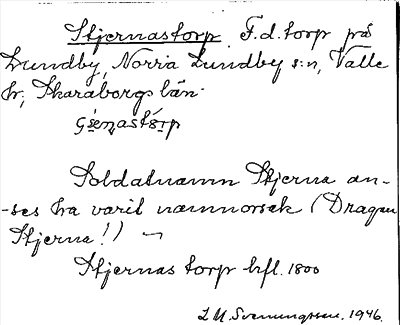 Stjernastorp F.d. torp på
Lundby, Norra Lundby s:n, Valle
hr, Skaraborgs län.
Soldatnamn Stjerna an-
-ses ha varit namnorsak (Dragon
Stjerna!)
Stjernas torp hfl. 1800
L M. Svenungsson. 1946.